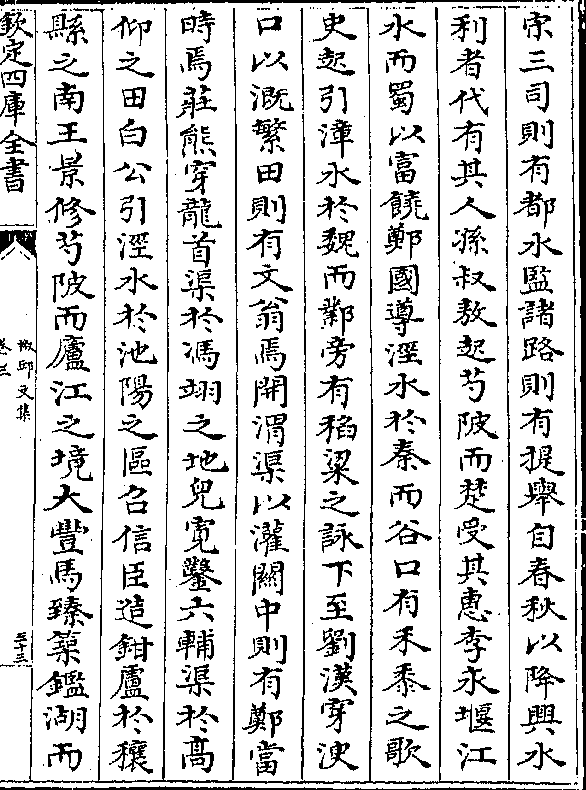 宋三司則有都水監諸路則有提舉自春秋以降興水
利者代有其人孫叔敖起芍陂而楚受其惠李永堰江
水而蜀以富饒鄭國導涇水於秦而谷口有禾黍之歌
史起引漳水於魏而鄴旁有稻粱之詠下至劉漢穿洩
口以溉繁田則有文翁焉開渭渠以灌關中則有鄭當
時焉莊熊穿龍首渠於馮翊之地兒寬鑿六輔渠於高
仰之田白公引涇水於池陽之區召信臣造鉗盧於穰
縣之南王景修芍陂而廬江之境大豐馬臻築鑑湖而
欽定四庫全書
椒邱文集
卷三
三十三